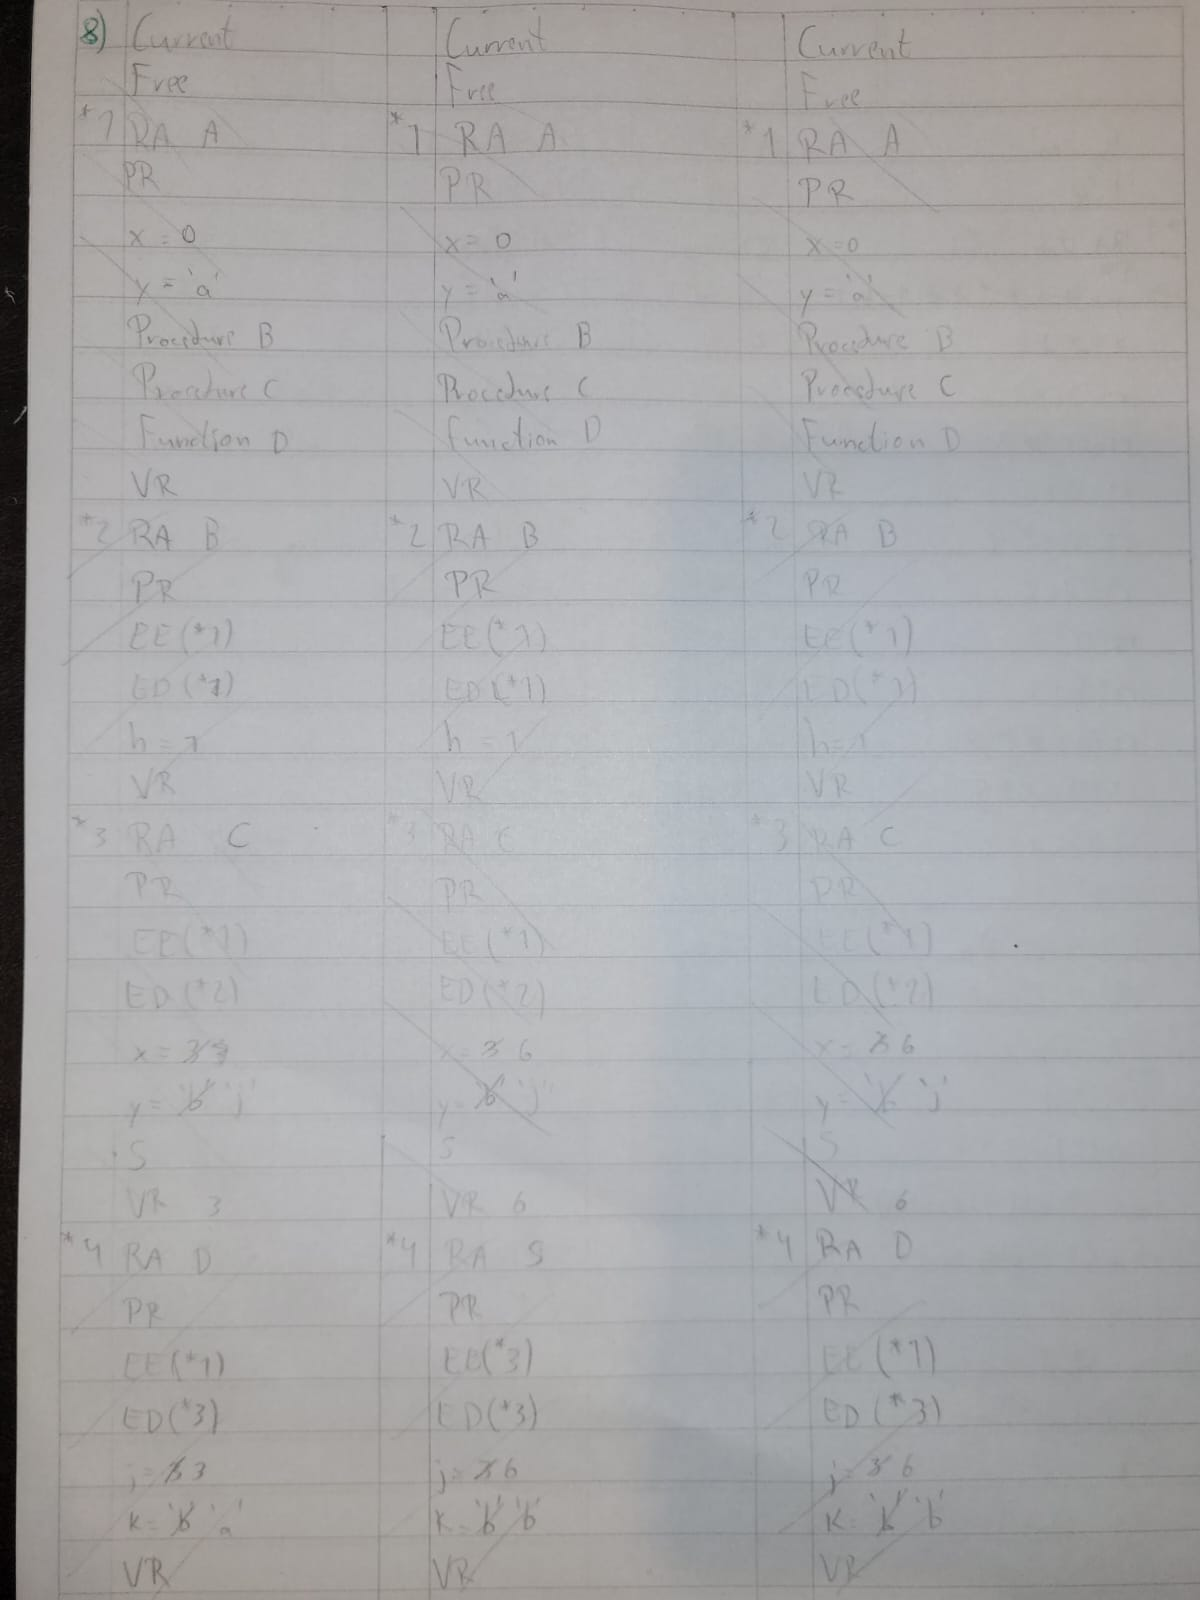 8) Current
Free
*1 RA A
PR
x = 0
y = 'a'
Procedure B
Procedure C
Function D
VR
*2 RA B
PR
EE(*1)
ED(*1)
h = 1
VR
*3 RA C
PR
EE(*1)
ED(*2)
x = 3 3
y = 'b' 'j'
S
VR 3
*4 RA D
PR
EE(*1)
ED(*3)
j = 3 3
k = 'b' 'a'
VR
Current
Free
*1 RA A
PR
x = 0
y = 'a'
Procedure B
Procedure C
Function D
VR
*2 RA B
PR
EE(*1)
ED(*1)
h = 1
VR
*3 RA C
PR
EE(*1)
ED(*2)
x = 3 6
y = 'b' 'j'
S
VR 6
*4 RA S
PR
EE(*3)
ED(*3)
j = 3 6
k = 'b' 'b'
VR
Current
Free
*1 RA A
PR
x = 0
y = 'a'
Procedure B
Procedure C
Function D
VR
*2 RA B
PR
EE(*1)
ED(*1)
h = 1
VR
*3 RA C
PR
EE(*1)
ED(*2)
x = 3 6
y = 'b' 'j'
S
VR 6
*4 RA D
PR
EE(*1)
ED(*3)
j = 3 6
k = 'b' 'b'
VR